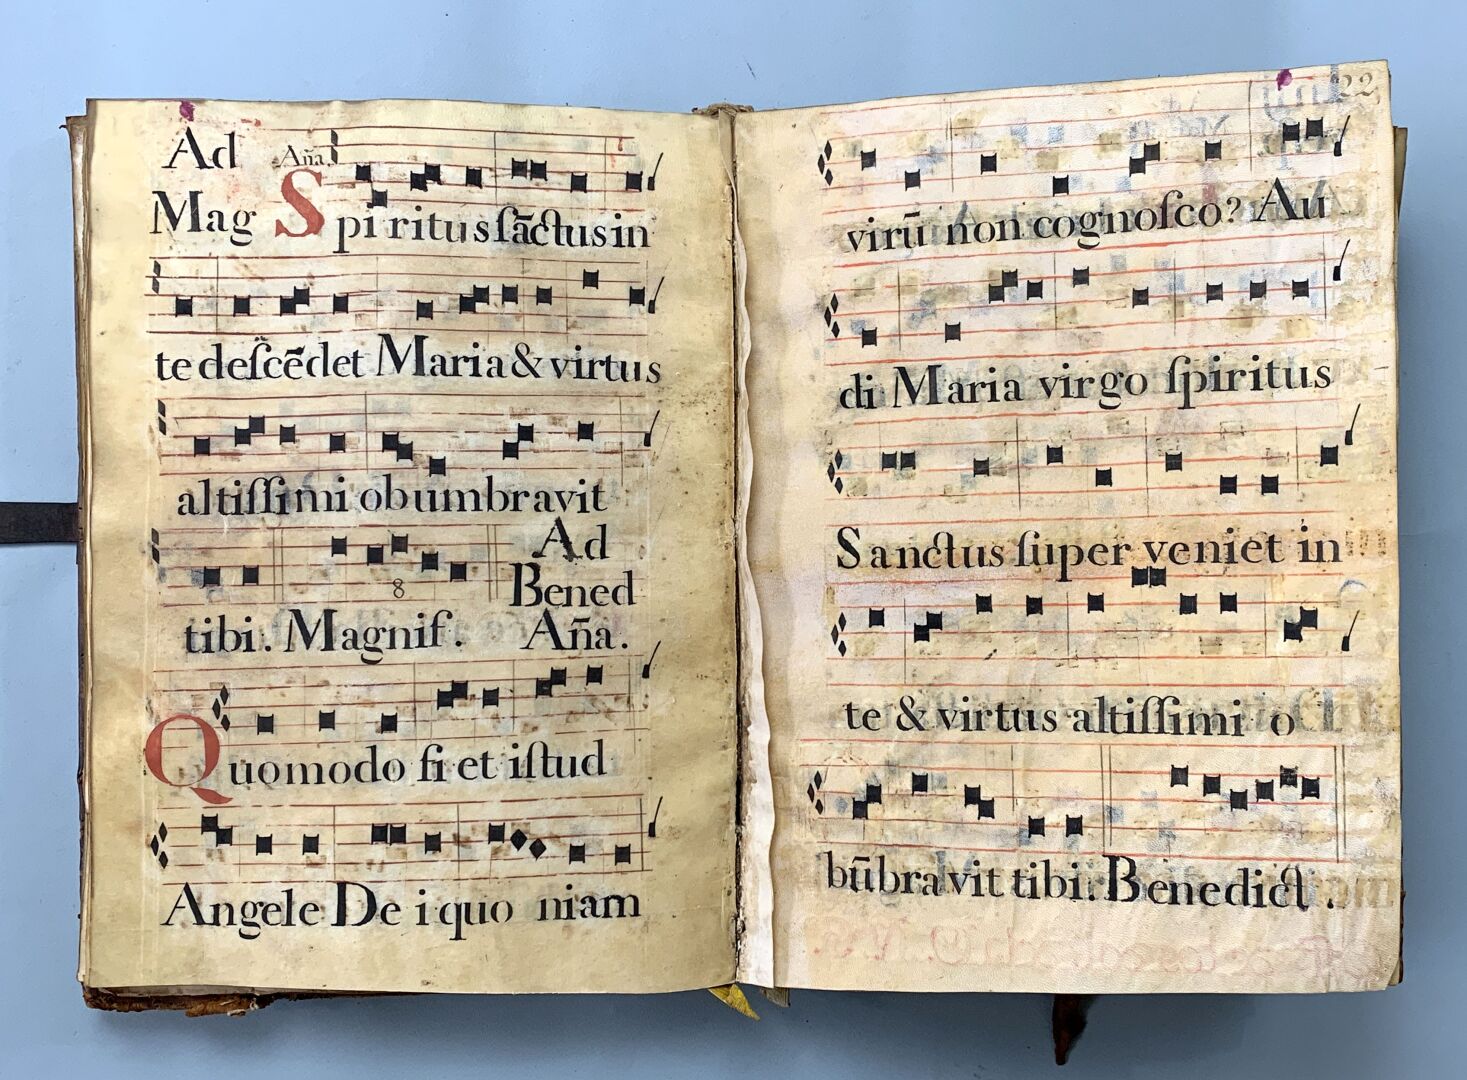 Ad Aña
Mag Spiritus sãctus in
te deſcẽdet Maria & virtus
altiſſimi obumbravit
Ad
8
Bened
tibi. Magnif. Aña.
Quomodo fiet iſtud
Angele Dei quoniam
22
virũ non cognoſco? Au
di Maria virgo ſpiritus
Sanctus ſuper veniet in
te & virtus altiſſimi o
bũbravit tibi. Benedict.